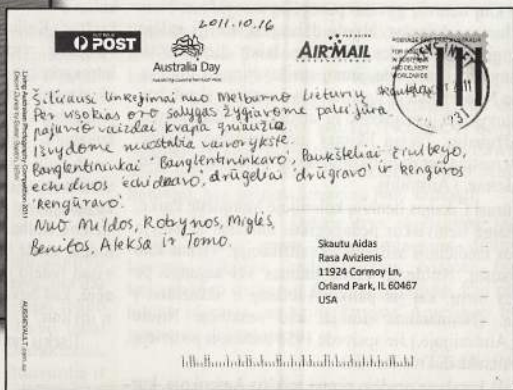 2011.10.16
POST
Australia Day
AIR MAIL
INTERNATIONAL
Šilčiausi linkėjimai nuo Melburno Lietuvių skautų
Per visokias oro sąlygas žygiavome palei jūrą.
pajurio vaizdai kvapą gniaužia
Išvydome nuostabią vaivorykštę.
Banglentininkai 'Banglentininkavo', Paukšteliai čiulbėjo,
echidnos 'echidnavo', drugeliai 'drugravo' ir kengūros
'kengūravo'.
Nuo Mildos, Robynos, Miglės,
Benitos, Aleksa ir Tomo.
Skautu Aidas
Rasa Avizienis
11924 Cormoy Ln,
Orland Park, IL 60467
USA
Living Australian Photography Competition 2011
AUSSIEVAULT.com.au